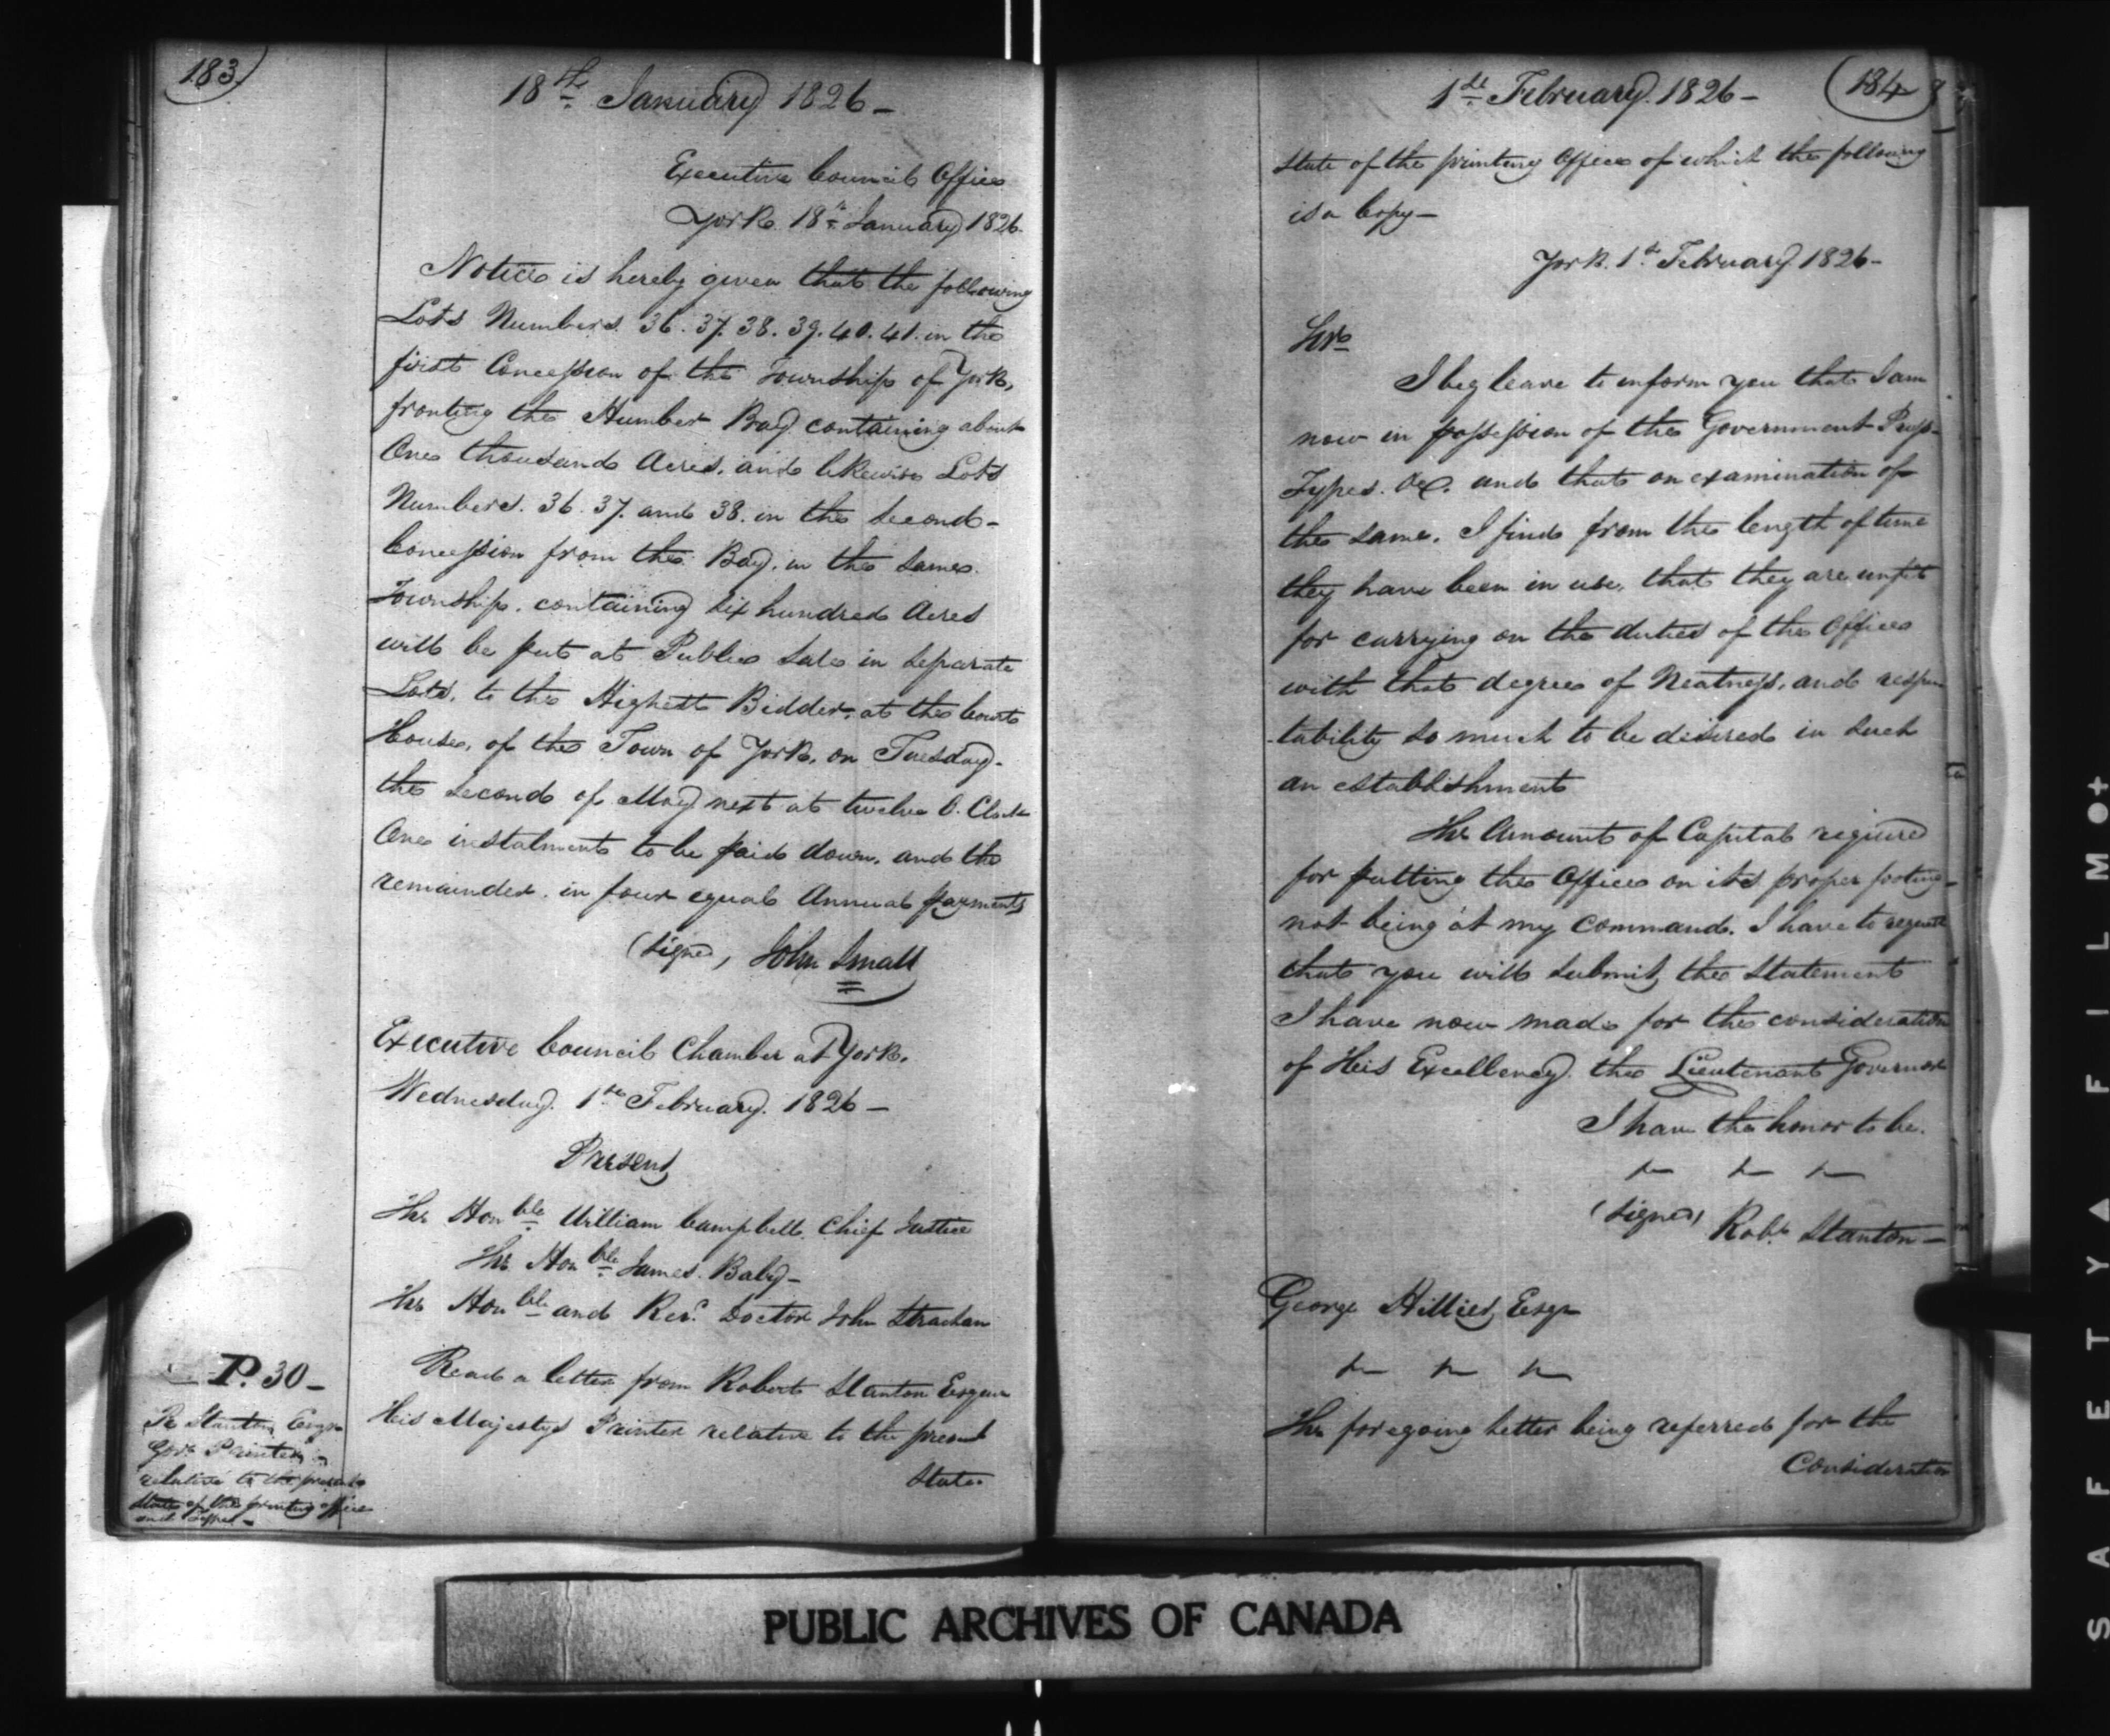 183
18th January 1826 -
Executive Council Office
York 18th January 1826.
Notice is hereby given that the following
Lots Numbers. 36. 37. 38. 39. 40. 41. in the
first Concession of the Township of York,
fronting the Humber Bay containing about
One thousand Acres. and likewise Lots
Numbers. 36. 37. and 38. in the second -
Concession from the Bay. in the same.
Township. containing six hundred Acres
will be put at Public Sale in separate
Lots, to the Highest Bidder, at the Court
House, of the Town of York, on Tuesday -
the second of May next at twelve O. Clock
One instalment to be paid down. and the
remainder. in four equal Annual payments
(signed, John Small
Executive Council Chamber at York.
Wednesday. 1st February. 1826 -
Present
The Honble William Campbell Chief Justice
The Honble James. Baby -
The Honble and Revd. Doctor John Strachan
P. 30 -
Read a letter from Robert Stanton Esquire
His Majestys Printer relative to the present
State
R Stanton, Esqr
Govt Printer -
relative to the present
state of the printing office
and Types -
1st February. 1826 -
184
State of the printing Office of which the following
is a Copy -
York. 1st February 1826 -
Sir
I beg leave to inform you that I am
now in possession of the Government Press -
Types. &c. and that on examination of
the same. I find from the length of time
they have been in use. that they are unfit
for carrying on the duties of the Office
with that degree of Neatness, and respec
-tability so much to be desired in such
an establishment
The Amount of Capital required
for putting the Office on its proper footing -
not being at my command. I have to request
that you will submit the Statement
I have now made for the consideration
of His Excellency. the Lieutenant Governor
I have the honor to be.
(signed) Robt Stanton -
George Hillier, Esqr
The foregoing letter being referred for the
Consideration
PUBLIC ARCHIVES OF CANADA
SAFETY FILM